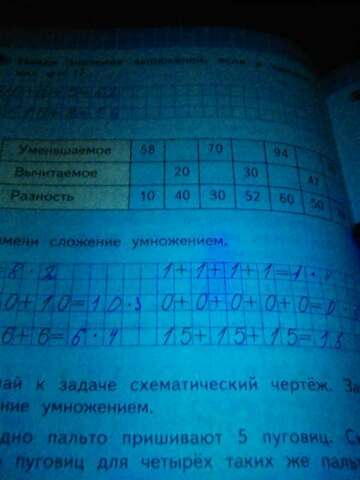 Найди значения выражений, если
Уменьшаемое 58 70 94
Вычитаемое 20 30 47
Разность 10 40 30 52 60 50
мени сложение умножением.
8 · 2 1+1+1+1=1 ·
0+10=10·3 0+0+0+0+0=0
6+6=6·4 15+15+15=15
ай к задаче схематический чертёж. За
ние умножением.
дно пальто пришивают 5 пуговиц. Ск
пуговиц для четырёх таких же паль